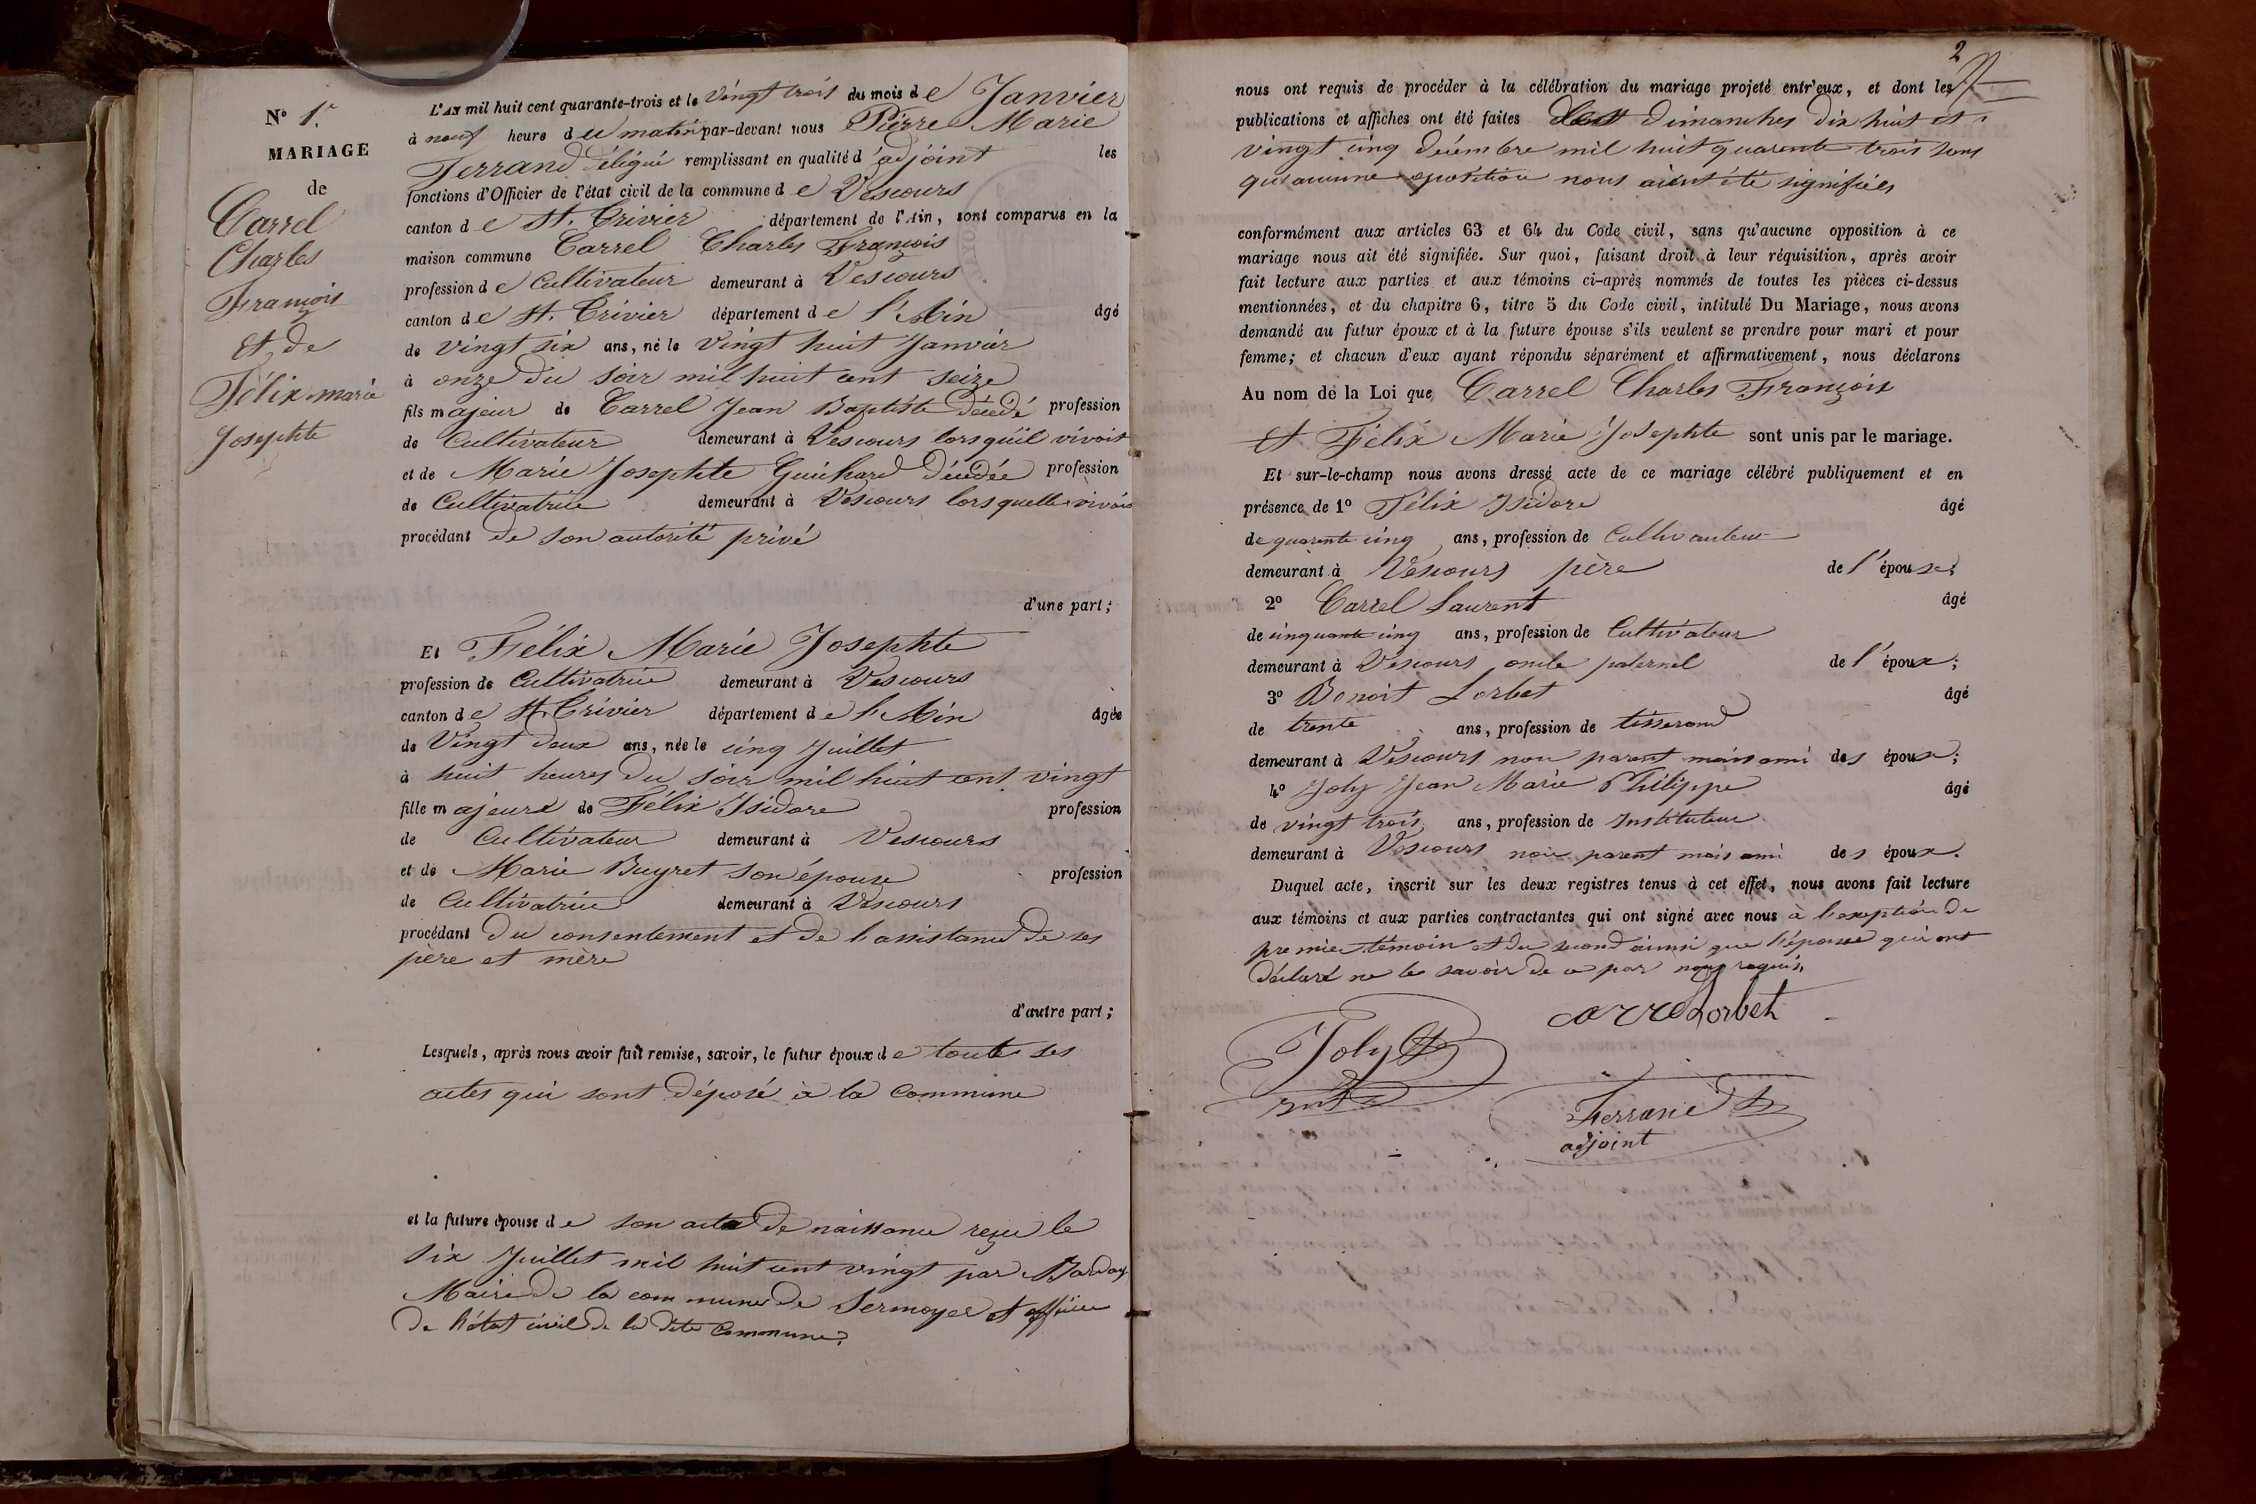 N° 1.er
MARIAGE
de
Carrel
Charles
François
et de
Félix marie
Josephte
L'AN mil huit cent quarante-trois et le vingt trois du mois de Janvier
à neuf heure du matin par-devant nous Pierre Marie
Ferrand délégué remplissant en qualité d'adjoint les
fonctions d'Officier de l'état civil de la commune de Vescours
canton de St. Trivier département de l'Ain, sont comparus en la
maison commune Carrel Charles François
profession de Cultivateur demeurant à Vescours
canton de St. Trivier département de l'Ain âgé
de vingt six ans, né le vingt huit Janvier
à onze du soir mil huit cent seize
fils majeur de Carrel Jean Baptiste décédé profession
de Cultivateur demeurant à Vescours lorsqu'il vivoit
et de Marie Josephte Guichard décédée profession
de Cultivatrice demeurant à Vescours lorsquelle vivois
procédant de son autorité privé
d'une part;
Et Félix Marie Josephte
profession de Cultivatrice demeurant à Vescours
canton de St. Trivier département de l'Ain âgée
de Vingt deux ans, née le cinq Juillet
à huit heures du soir mil huit cent vingt
fille majeure de Félix Isidore profession
de Cultivateur demeurant à Vescours
et de Marie Buyret son épouse profession
de Cultivatrice demeurant à Vescours
procédant du consentement et de l'assistance de ses
père et mère
d'autre part;
Lesquels, après nous avoir fait remise, savoir, le futur époux de toute ses
actes qui sont déposé à la commune
et la future épouse de son acte de naissance reçu le
six Juillet mil huit cent vingt par
Maire de la commune de Sermoyer et officier
de l'état civil de la dite Commune.
2
nous ont requis de procéder à la célébration du mariage projeté entr'eux, et dont les
publications et affiches ont été faites dimanches dix huit et
vingt cinq décembre mil huit quarente trois sans
qu'aucune opposition nous aient été signifiées
conformément aux articles 63 et 64 du Code civil, sans qu'aucune opposition à ce
mariage nous ait été signifiée. Sur quoi, faisant droit à leur réquisition, après avoir
fait lecture aux parties et aux témoins ci-après nommés de toutes les pièces ci-dessus
mentionnées, et du chapitre 6, titre 5 du Code civil, intitulé Du Mariage, nous avons
demandé au futur époux et à la future épouse s'ils veulent se prendre pour mari et pour
femme; et chacun d'eux ayant répondu séparément et affirmativement, nous déclarons
Au nom de la Loi que Carrel Charles François
et Félix Marie Josephte sont unis par le mariage.
Et sur-le-champ nous avons dressé acte de ce mariage célébré publiquement et en
présence de 1° Félix Isidore âgé
de quarente cinq ans, profession de Cultivauteur
demeurant à Vescours père de l'épouse;
2° Carrel Laurent âgé
de cinquante cinq ans, profession de Cultivateur
demeurant à Vescours oncle paternel de l'époux;
3° Benoit Lorbet âgé
de trente ans, profession de tisserand
demeurant à Vescours non parent mais ami des époux;
4° Joly Jean Marie Philippe âgé
de vingt trois ans, profession de Instituteur
demeurant à Vescours non parent mais ami des époux.
Duquel acte, inscrit sur les deux registres tenus à cet effet, nous avons fait lecture
aux témoins et aux parties contractantes qui ont signé avec nous à l'exeption de
premier témoin et du second ainsi que l'épouse qui ont
déclaré ne le savoir de ce par nous requis.
Carrel Lorbet
Joly
Ferrand
adjoint